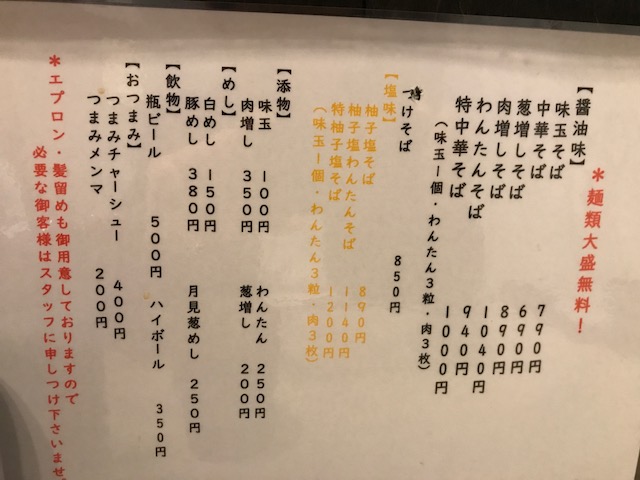 *麺類大盛無料!
【醤油味】
味玉そば 790円
中華そば 690円
葱増しそば 890円
肉増しそば 1040円
わんたんそば 940円
特中華そば 1000円
(味玉一個・わんたん3粒・肉3枚)
つけそば 850円
【塩味】
柚子塩そば 890円
柚子塩わんたんそば 1140円
特柚子塩そば 1200円
(味玉一個・わんたん3粒・肉3枚)
【添物】
味玉 100円 わんたん 250円
肉増し 350円 葱増し 200円
【めし】
白めし 150円
豚めし 380円 月見葱めし 250円
【飲物】
瓶ビール 500円 ハイボール 350円
【おつまみ】
つまみチャーシュー 400円
つまみメンマ 200円
*エプロン・髪留めも御用意しておりますので
必要な御客様はスタッフに申しつけ下さいませ